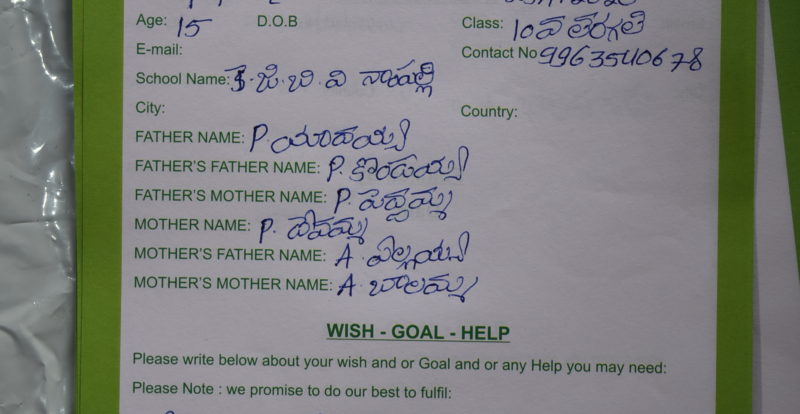 Age: 15 D.O.B Class: 10వ తరగతి
E-mail: Contact No 9963540678
School Name: కె.జి.బి.వి నాంపల్లి
City: Country:
FATHER NAME: P. యాదయ్య
FATHER'S FATHER NAME: P. కొండయ్య
FATHER'S MOTHER NAME: P. పెద్దమ్మ
MOTHER NAME: P. దేవమ్మ
MOTHER'S FATHER NAME: A. ఎల్లయ్య
MOTHER'S MOTHER NAME: A. బాలమ్మ
WISH - GOAL - HELP
Please write below about your wish and or Goal and or any Help you may need:
Please Note : we promise to do our best to fulfil: